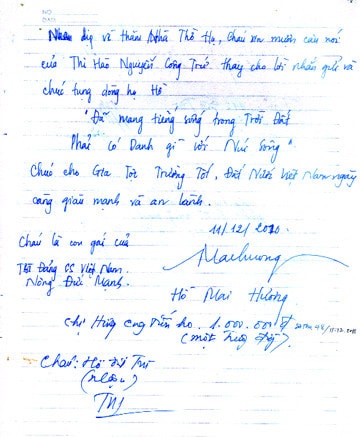 NO
DATE
Nhân dịp về thăm Nhà Thờ Họ, cháu xin mượn câu nói
của Thi Hào Nguyễn Công Trứ thay cho lời nhắn gửi và
chúc tụng dòng họ Hồ
"Đã mang tiếng sống trong Trời Đất
Phải có Danh gì với Núi Sông".
Chúc cho Gia Tộc Trường Tồn, Đất Nước Việt Nam ngày
càng giàu mạnh và an lành.
11/12/2010
Cháu là con gái của
TBT Đảng CS Việt Nam.
Nông Đức Mạnh.
Maihuong
Hồ Mai Hương
chị Hương cúng tiến họ 1.000.000đ
(một triệu đồng)
Cháu: Hồ Trí
(nhận)
Trí